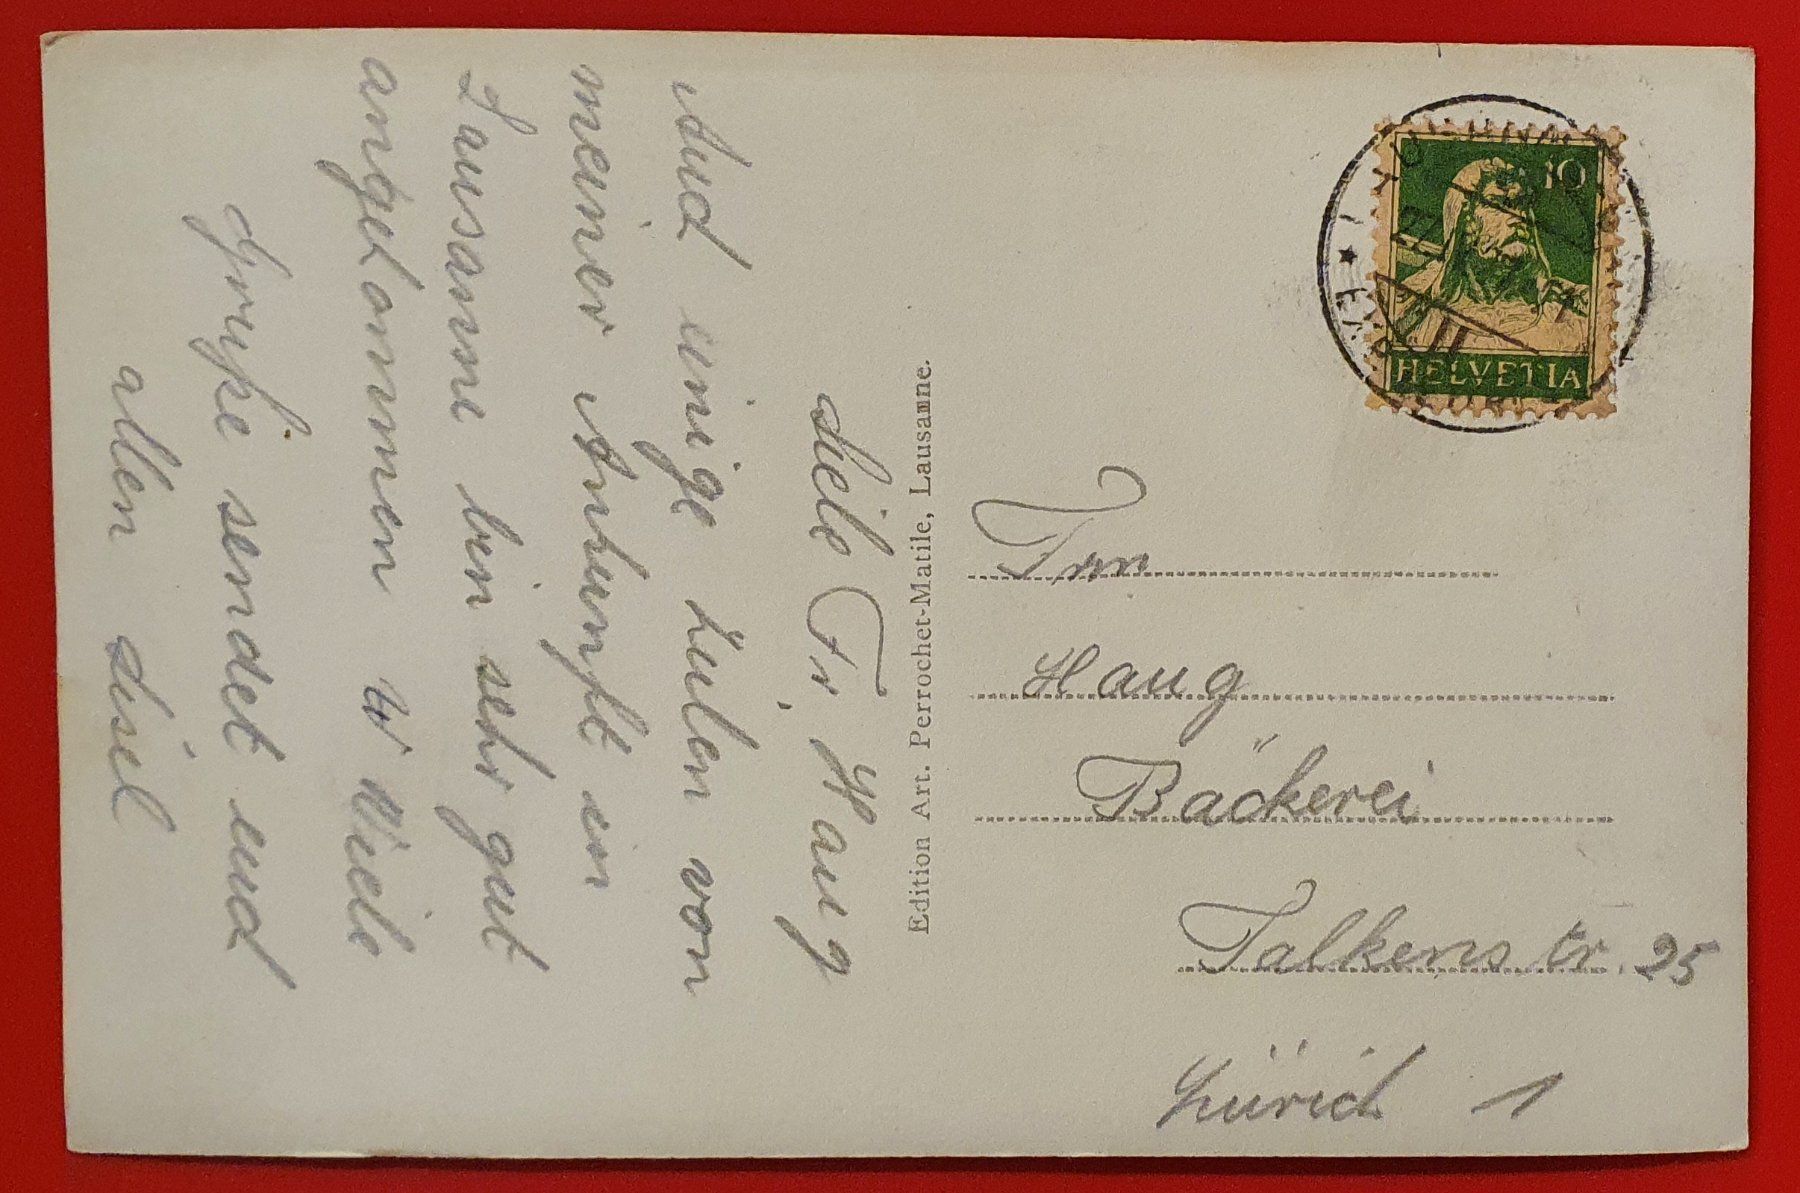 Liebe Fr. Haug
Auch einige Zeilen von
meiner Ankunft in
Lausanne bin sehr gut
angekommen Viele
Grüße sendet euch
allen Lisel
Edition Art. Perrochet-Matile, Lausanne.
10
HELVETIA
Frau
Haug
Bäckerei
Falkenstr. 25
Zürich 1